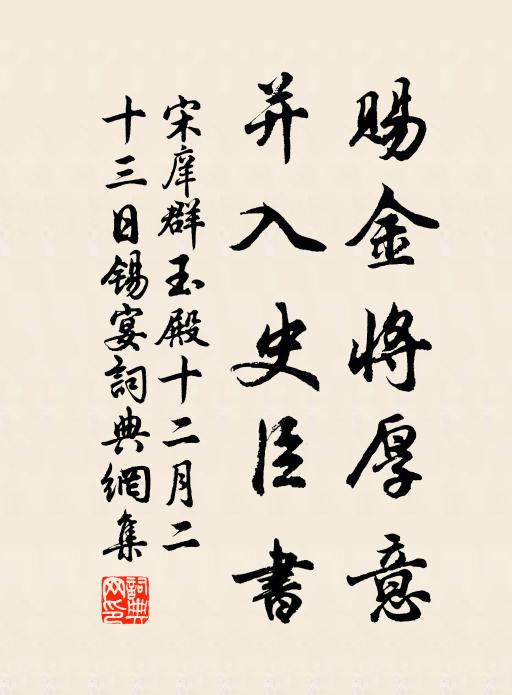 賜金將厚意
并入史臣書
宋庠群玉殿十二月二
十三日錫宴詞典網集
詞典網印